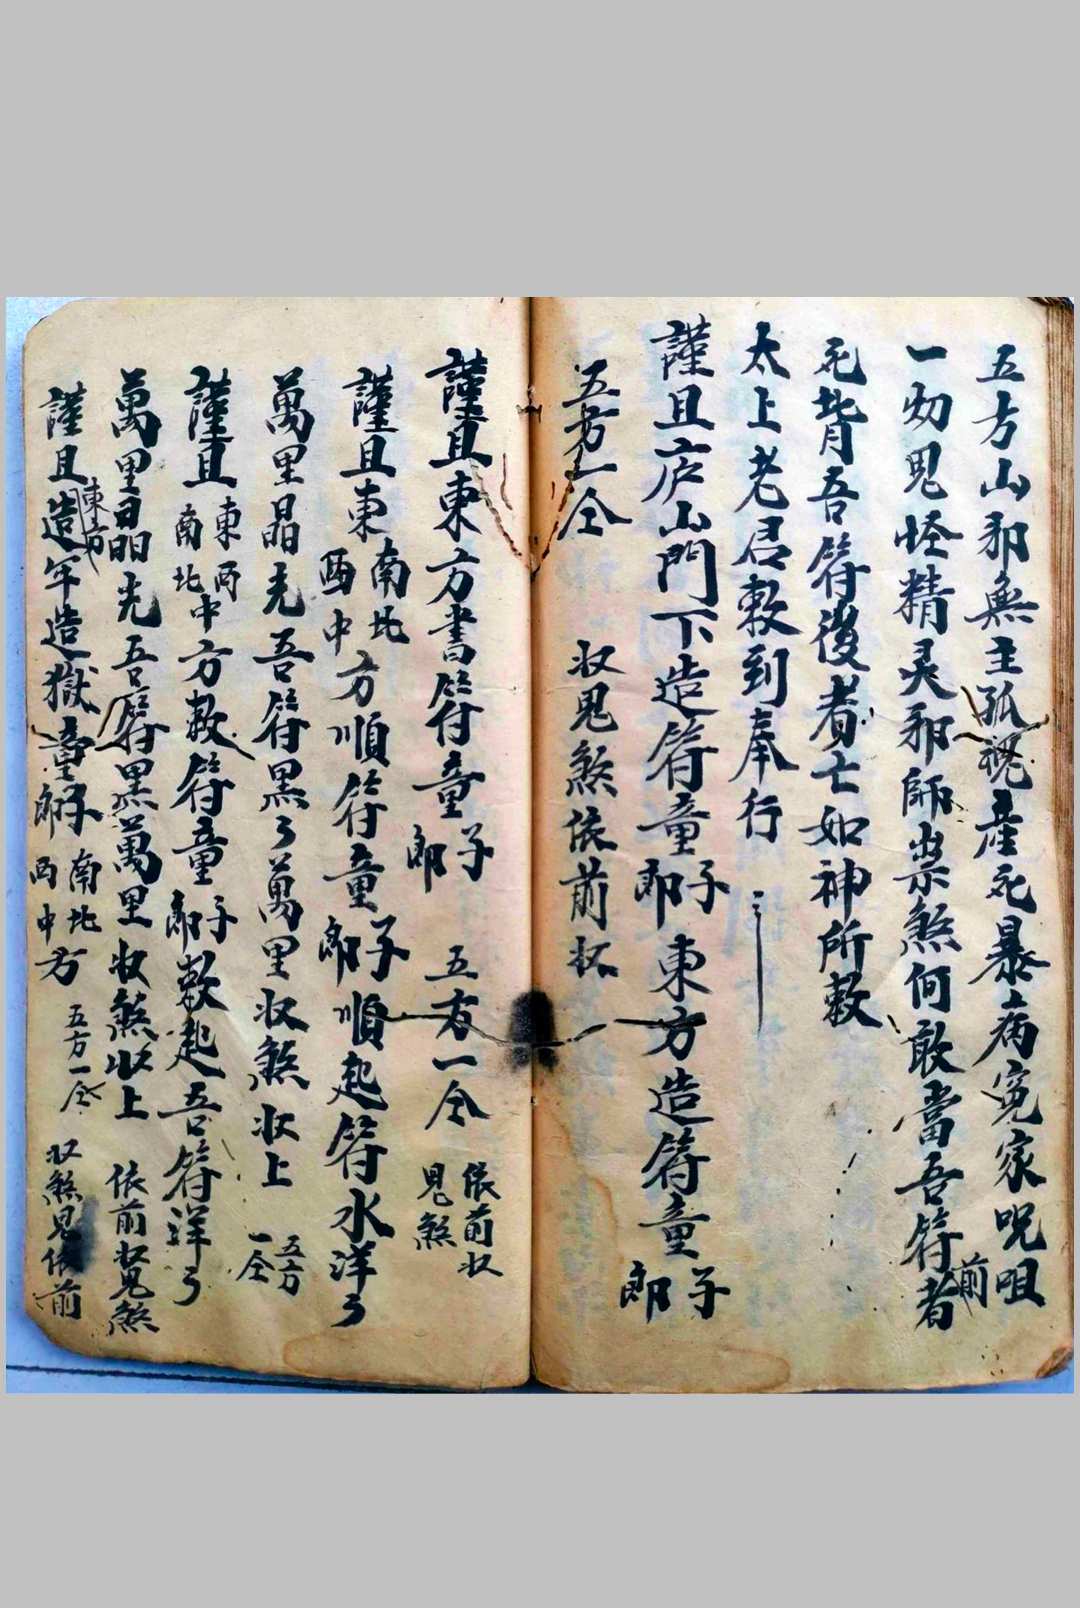 五方山邪無主孤魂產死暴病冤家呪咀
一切鬼怪精灵邪師崇煞何敢當吾符前者
死背吾符後者亡如神所敕
太上老君敕到奉行
謹且庐山門下造符童子郎東方造符童子郎
五方一仝 收鬼煞依前杯
謹且東方書符童子郎 五方一仝 依前收鬼煞
謹且東南西北中方順符童子郎順起符水洋々
萬里晶光吾符黑々萬里收煞收上 五方一仝
謹且東西南北中方敕符童子郎敕起吾符洋々
萬里晶光吾符黑萬里收煞收上 依前收鬼煞
謹且東方造牢造獄童子郎南北西中方 五方一仝 收煞鬼依前